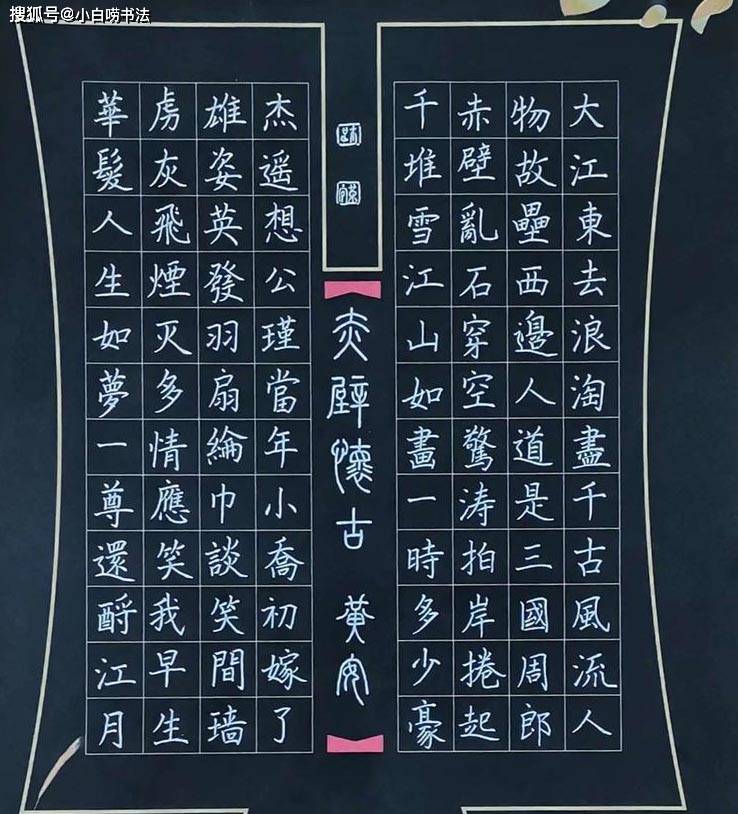 搜狐号@小白唠书法
大江東去浪淘盡千古風流人
物故壘西邊人道是三國周郎
赤壁亂石穿空驚涛拍岸捲起
千堆雪江山如畫一時多少豪
赤壁懷古 黄
杰遥想公瑾當年小喬初嫁了
雄姿英發羽扇綸巾談笑間墙
虏灰飛煙灭多情應笑我早生
華髮人生如夢一尊還酹江月